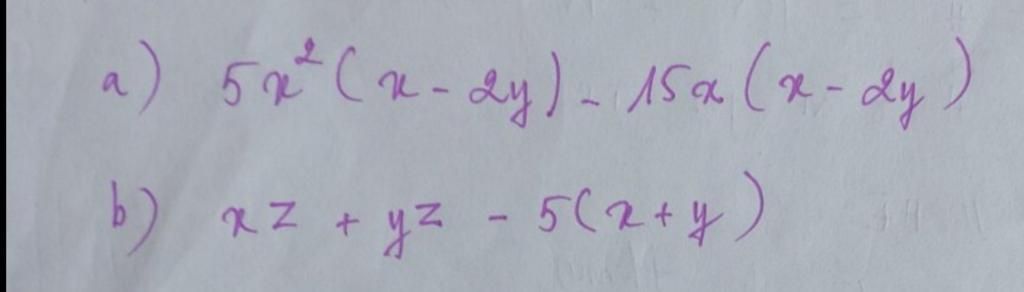 a) 5x²(x - 2y) - 15x(x - 2y)
b) xz + yz - 5(x + y)